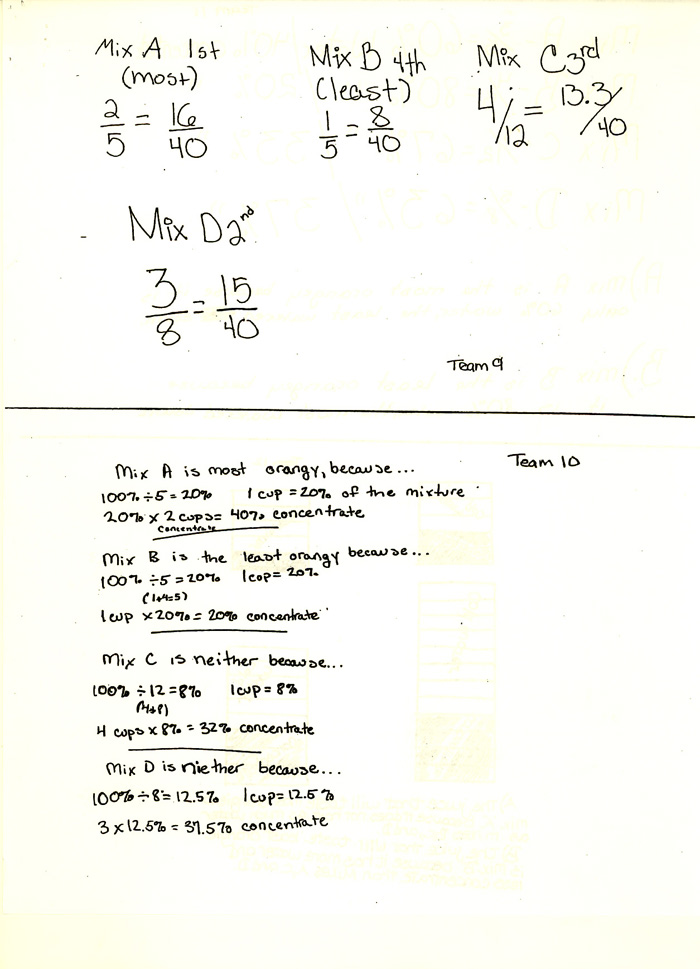 Mix A 1st
(most)
2/5 = 16/40
Mix B 4th
(least)
1/5 = 8/40
Mix C 3rd
4/12 = 13.3/40
Mix D 2nd
3/8 = 15/40
Team 9
Team 10
Mix A is most orangy, because...
100% ÷ 5 = 20% 1 cup = 20% of the mixture
20% x 2 cups = 40% concentrate
concentrate
Mix B is the least orangy because...
100% ÷ 5 = 20% 1 cop = 20%
(1+4=5)
1 cup x 20% = 20% concentrate
Mix C is neither because...
100% ÷ 12 = 8% 1 cup = 8%
(4+8)
4 cups x 8% = 32% concentrate
Mix D is niether because...
100% ÷ 8 = 12.5% 1 cup = 12.5%
3 x 12.5% = 37.5% concentrate